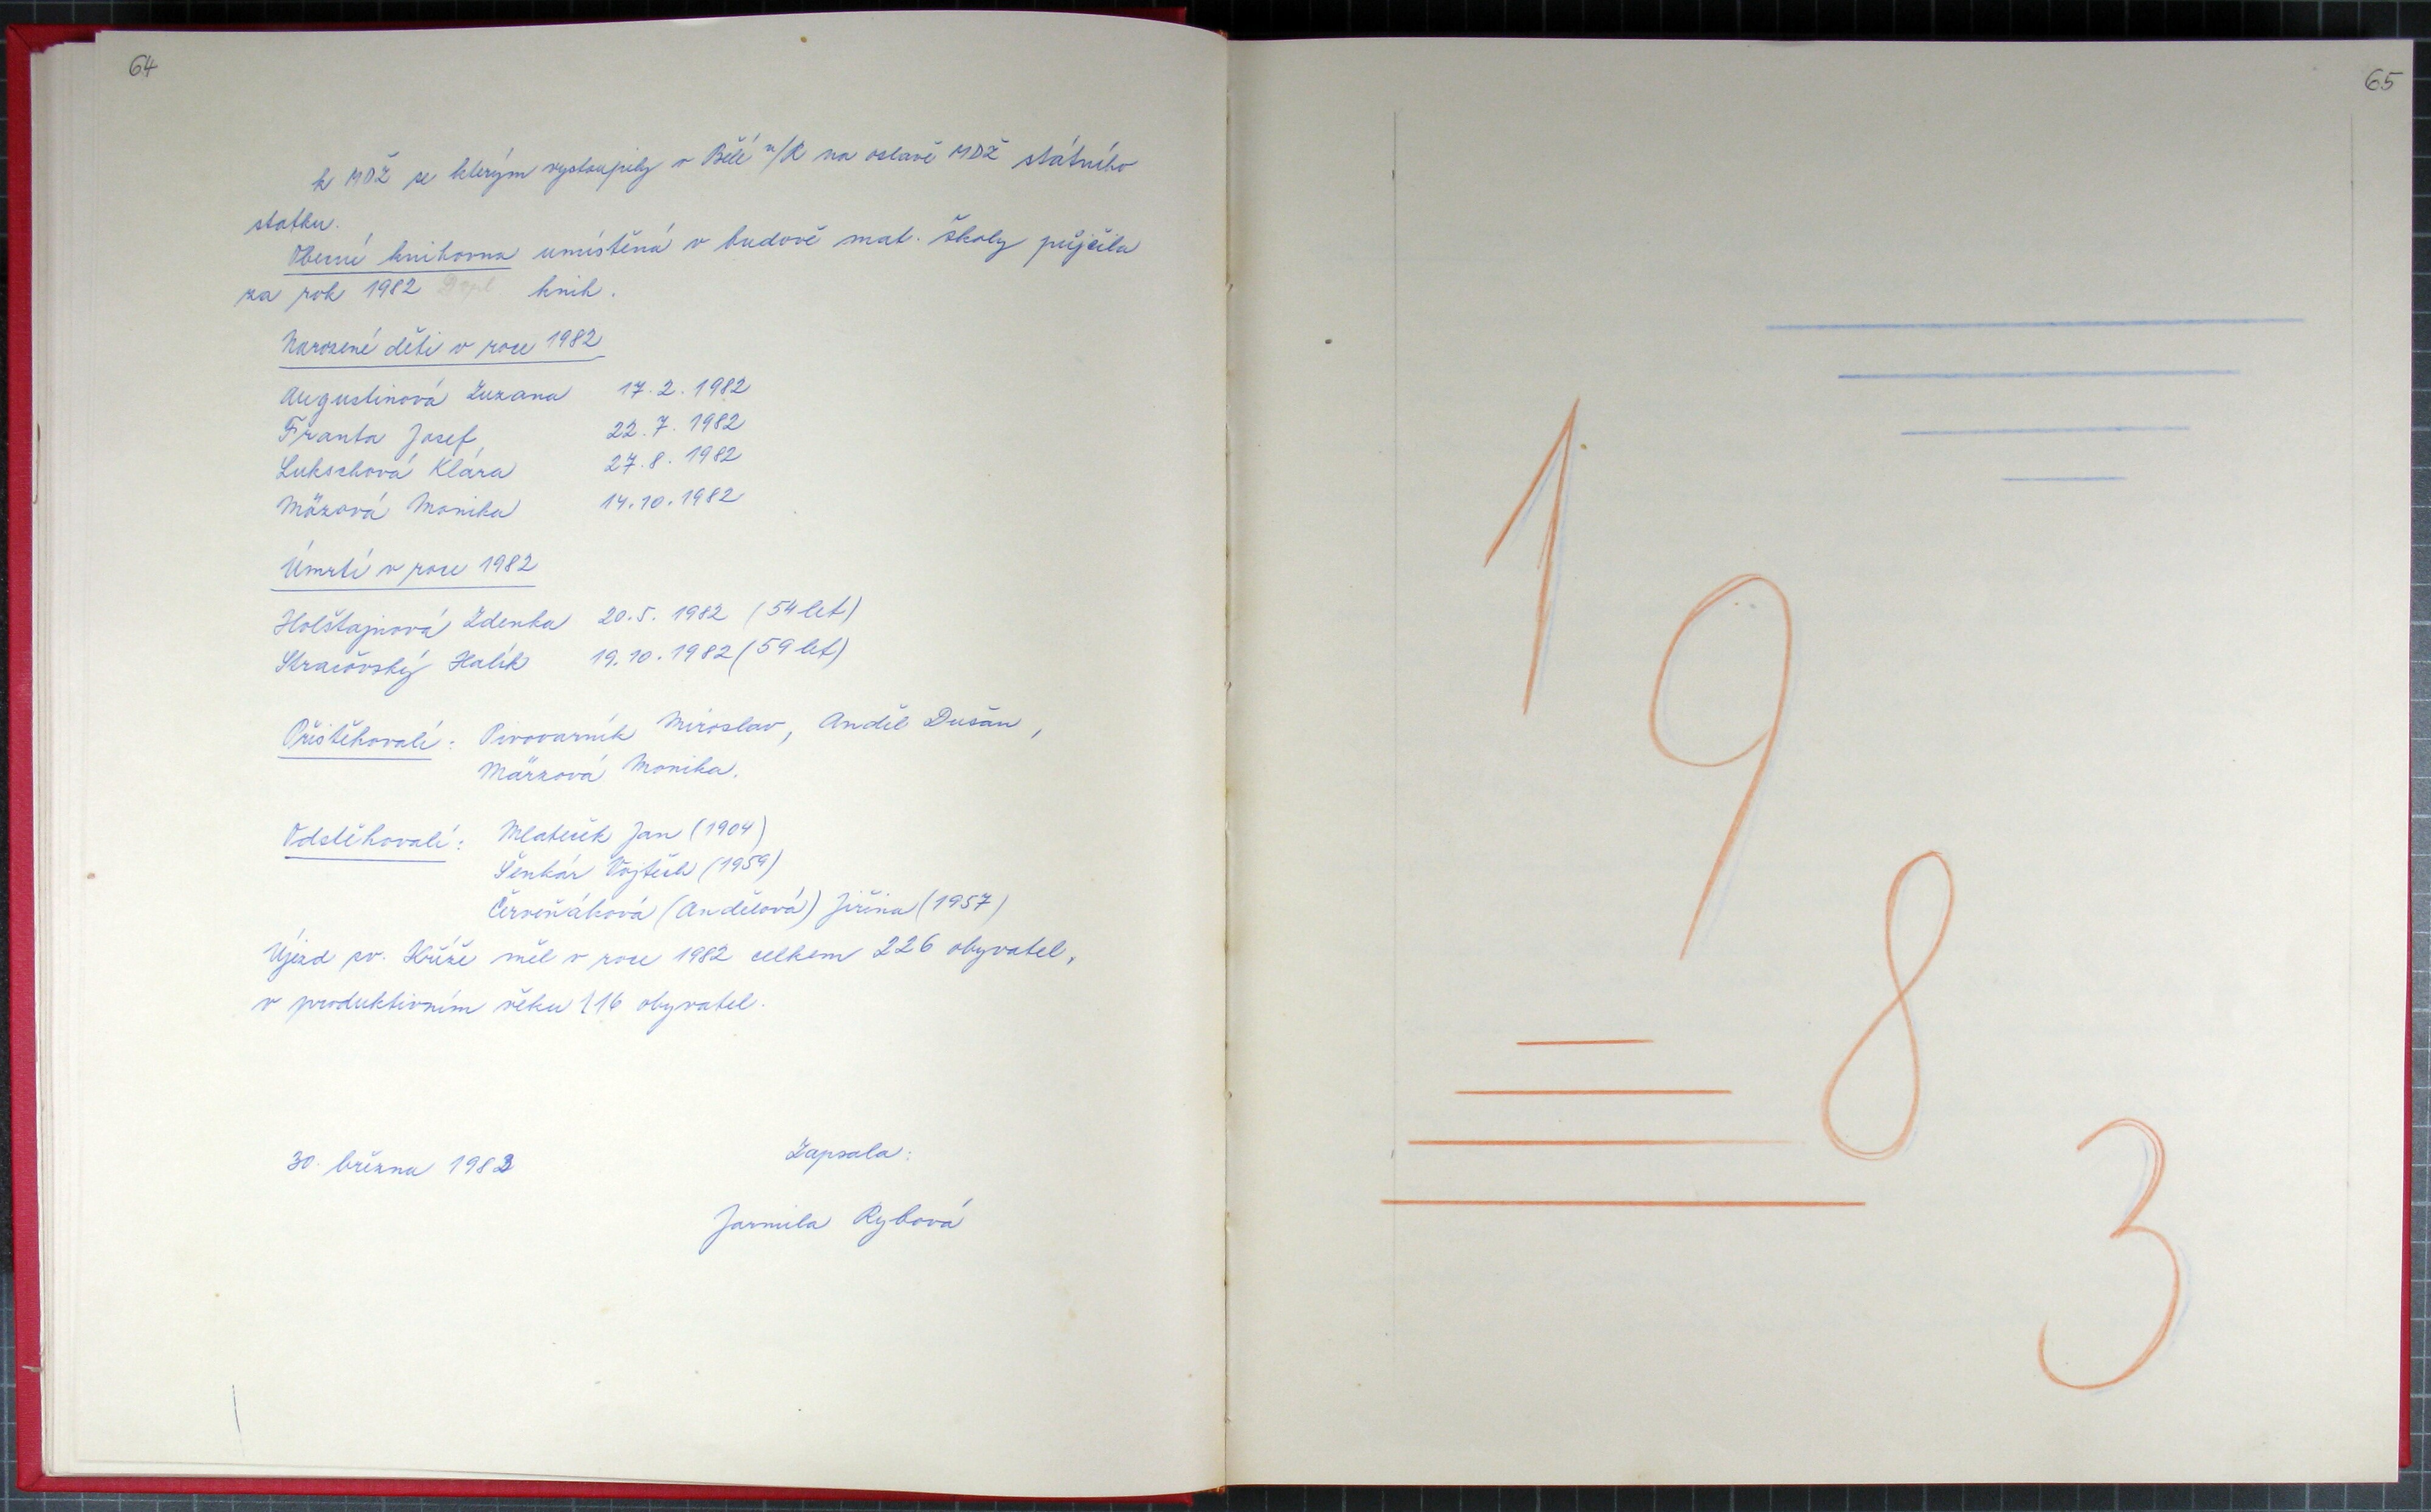 64
k MDŽ se kterým vystoupily v Bělé n/R na oslavě MDŽ státního
statku.
Obecní knihovna umístěná v budově mat. školy půjčila
za rok 1982 knih.
Narozené děti v roce 1982
Augustinová Zuzana 17.2.1982
Franta Josef 22.7.1982
Lukschová Klára 27.8.1982
Mäzová Monika 14.10.1982
Úmrtí v roce 1982
Holštajnová Zdenka 20.5.1982 (54 let)
Stracovský 19.10.1982 (59 let)
Přistěhovalí: Pivovarník Miroslav, Anděl Dušan,
Märzová Monika.
Odstěhovalí: Mlateček Jan (1904)
Šenkár Vojtěch (1959)
Červeňáková (Andělová) Jiřina (1957)
Újezd sv. Kříže měl v roce 1982 celkem 226 obyvatel,
v produktivním věku 116 obyvatel.
30. března 1983
Zapsala:
Jarmila Rybová
65
1
9
8
3